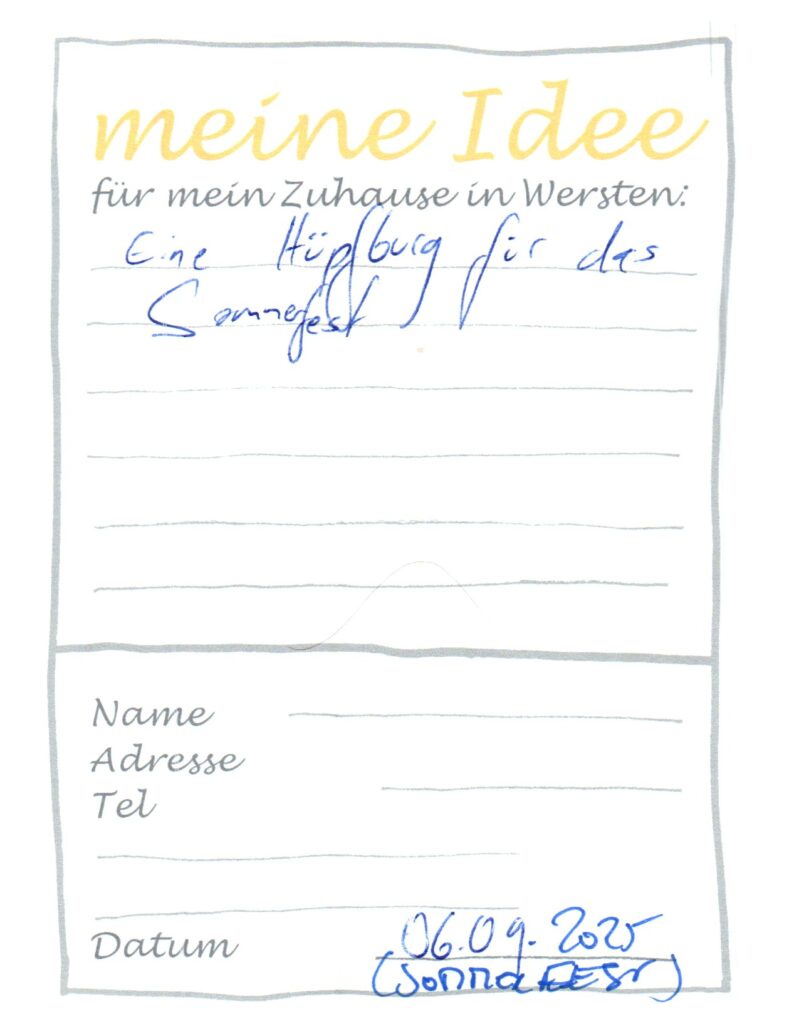 meine Idee
für mein Zuhause in Wersten:
Eine Hüpfburg für das
Sommerfest
Name
Adresse
Tel
Datum 06.09.2025
(SOMMAFEST)